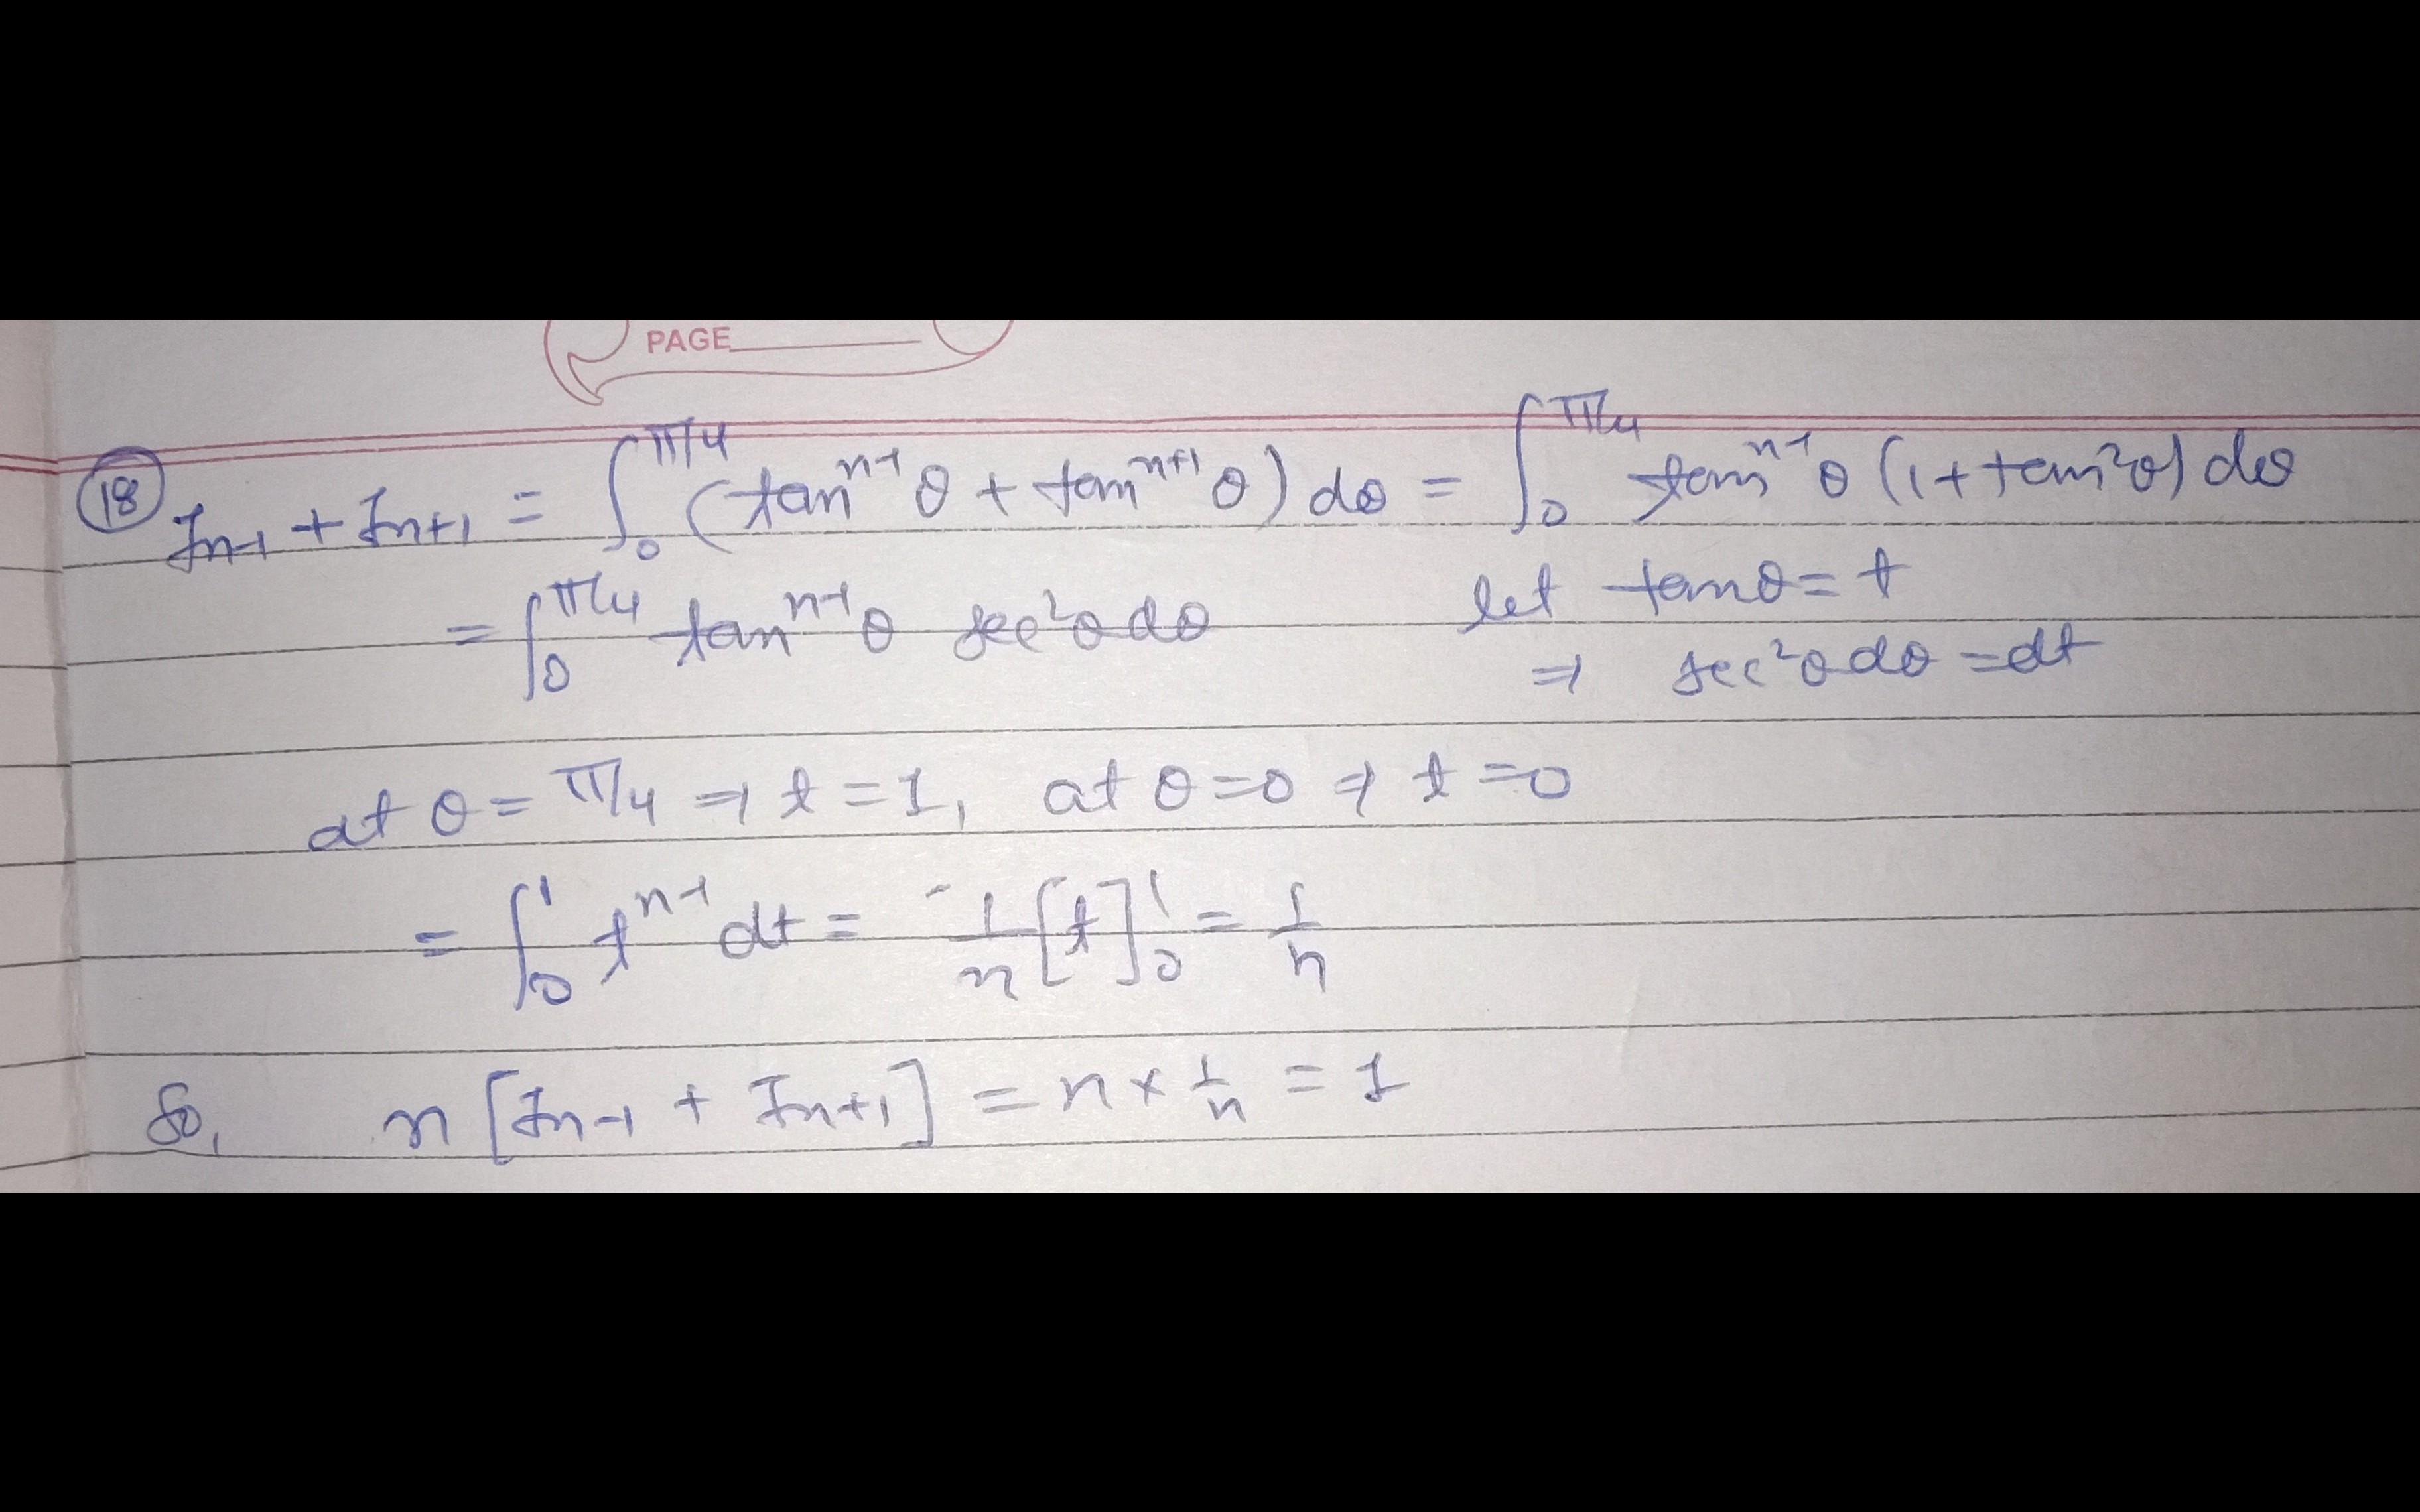 PAGE
(18) Iₙ₋₁ + Iₙ₊₁ = ∫₀^π/4 (tanⁿ⁻¹θ + tanⁿ⁺¹θ) dθ = ∫₀^π/4 tanⁿ⁻¹θ (1 + tan²θ) dθ
= ∫₀^π/4 tanⁿ⁻¹θ sec²θ dθ let tanθ = t
⇒ sec²θ dθ = dt
at θ = π/4 ⇒ t = 1, at θ = 0 ⇒ t = 0
= ∫₀¹ tⁿ⁻¹ dt = 1/n [t]₀¹ = 1/n
So, n [Iₙ₋₁ + Iₙ₊₁] = n × 1/n = 1